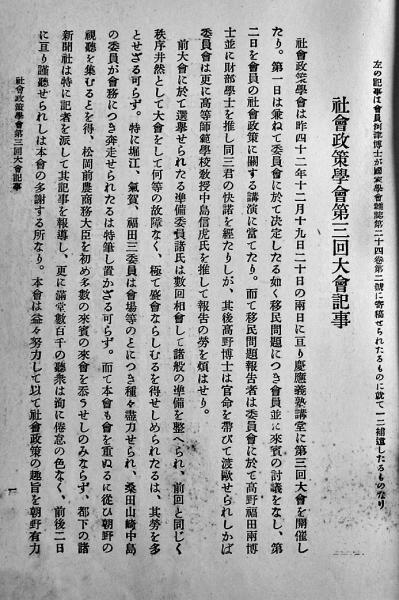 左の記事は會員河津博士が國家學會雜誌第二十四卷第二號に寄稿せられたるものに就て一二補遺したるものなり
社會政策學會第三回大會記事
社會政策學會は昨四十二年十二月十九日二十日の兩日に亘り慶應義塾講堂に第三回大會を開催し
たり。第一日は兼ねて委員會に於て決定したる如く移民問題につき會員並に來賓の討議をなし、第
二日を會員の社會政策に關する講演に當てたり。而て移民問題報告者は委員會に於て高野福田兩博
士並に財部學士を推し同三君の快諾を經たりしが、其後高野博士は官命を帶びて渡歐せられしかば
委員會は更に高等師範學校敎授中島信虎氏を推して報告の勞を煩はせり。
前大會に於て選擧せられたる準備委員諸氏は數回相會して諸般の準備を整へられ、前回と同じく
秩序井然として大會をして何等の故障なく、極て盛會ならしむるを得せしめられたるは、其勞を多
とせざる可らず。特に堀江、氣賀、福田三委員は會場等のとにつき種々盡力せられ、桑田山崎中島
の委員が會務につき奔走せられたるは特筆し置かざる可らず。而て本會も會を重ぬるに從ひ朝野の
視聽を集むるとを得、松岡前農商務大臣を初め多數の來賓の來會を忝うせしのみならず、都下の諸
新聞社は特に記者を派して其記事を報導し、更に滿堂數百千の聽衆は洵に倦怠の色なく、前後二日
に亘り謹聽せられしは本會の多謝する所なり。本會は益々努力して以て社會政策の趣旨を朝野有力
社會政策學會第三回大會記事
一